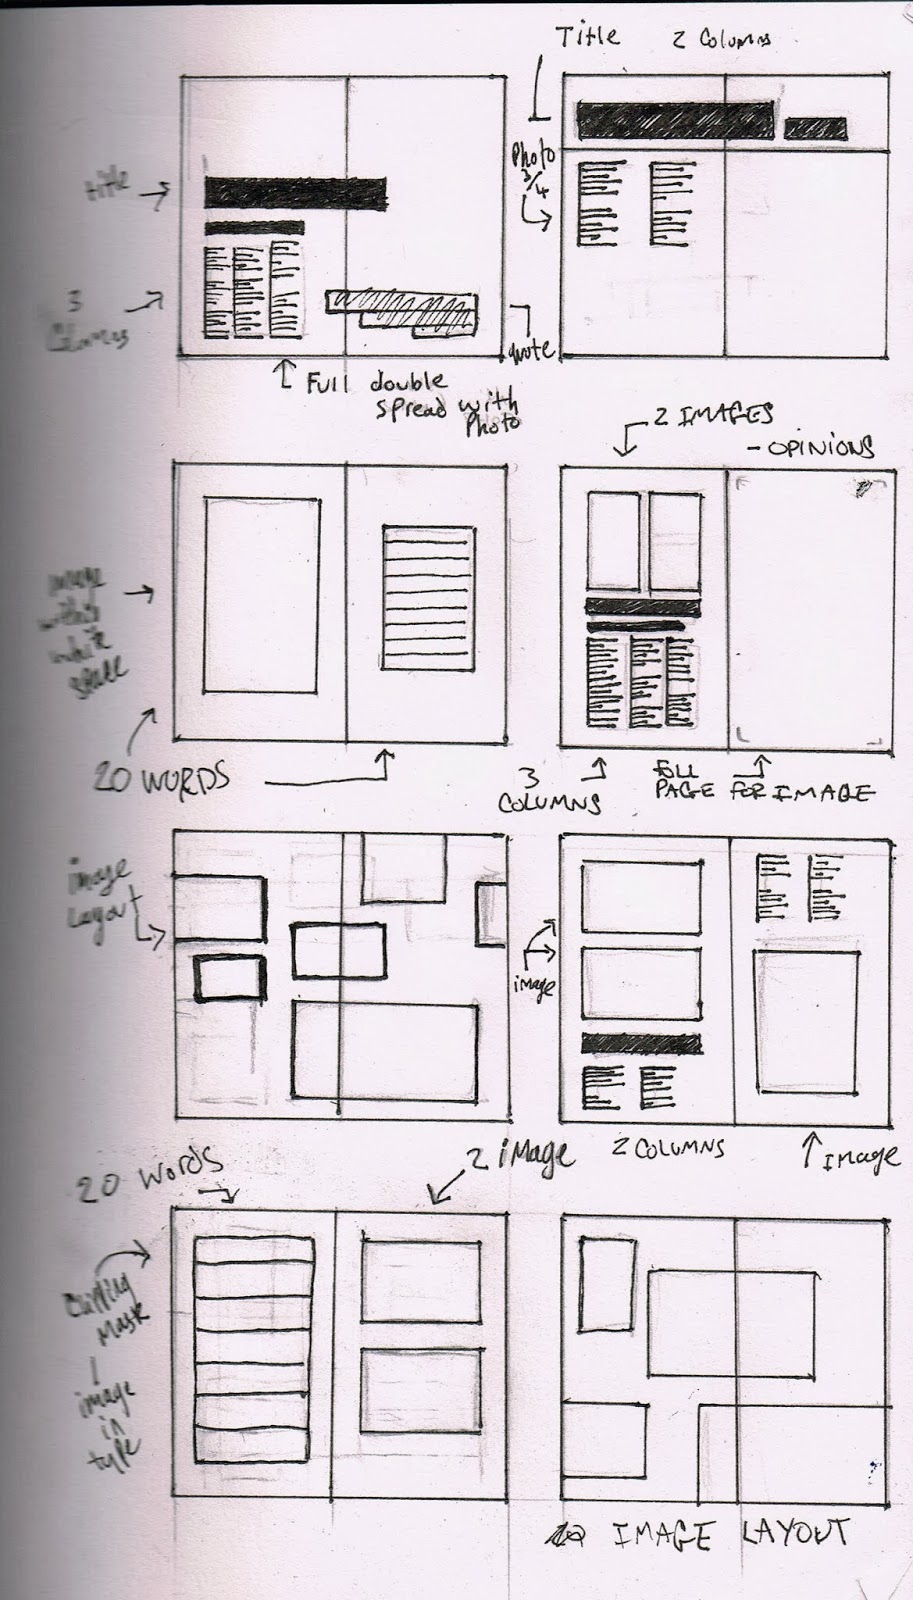 Title 2 Columns
title
Photo
3/4
3
quote
Full double
spread with
Photo
2 IMAGES
- OPINIONS
image
within
white
space
20 WORDS
3
COLUMNS
FULL
PAGE FOR IMAGE
image
Layout
image
2 COLUMNS
Image
20 Words
2 image
Clipping
Mask
image
in
type
IMAGE LAYOUT